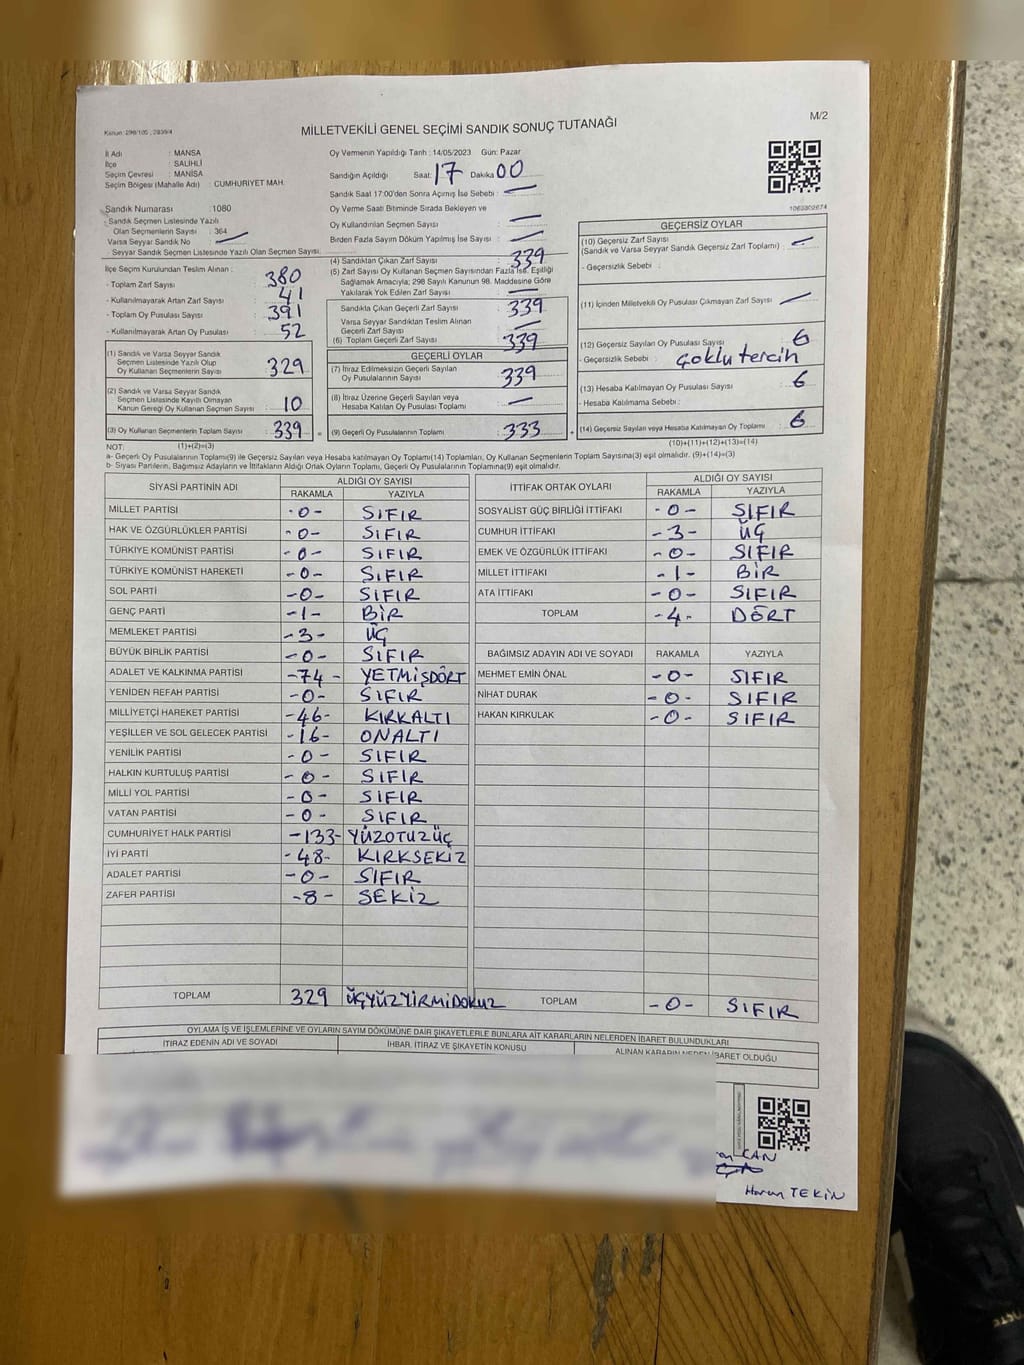 M/2
Kanun: 298/105 , 2839/4
MİLLETVEKİLİ GENEL SEÇİMİ SANDIK SONUÇ TUTANAĞI
İl Adı : MANSA
İlçe : SALİHLİ
Seçim Çevresi : MANİSA
Seçim Bölgesi (Mahalle Adı) : CUMHURİYET MAH.
Sandık Numarası : 1080
- Sandık Seçmen Listesinde Yazılı
Olan Seçmenlerin Sayısı : 364
Varsa Seyyar Sandık No
Seyyar Sandık Seçmen Listesinde Yazılı Olan Seçmen Sayısı:
Oy Vermenin Yapıldığı Tarih : 14/05/2023 Gün: Pazar
Sandığın Açıldığı Saat: 17 Dakika 00
Sandık Saat 17:00'den Sonra Açılmış İse Sebebi : —
Oy Verme Saati Bitiminde Sırada Bekleyen ve
Oy Kullandırılan Seçmen Sayısı : —
Birden Fazla Sayım Döküm Yapılmış İse Sayısı : —
1063302674
İlçe Seçim Kurulundan Teslim Alınan :
- Toplam Zarf Sayısı : 380
- Kullanılmayarak Artan Zarf Sayısı : 41
- Toplam Oy Pusulası Sayısı : 391
- Kullanılmayarak Artan Oy Pusulası : 52
(1) Sandık ve Varsa Seyyar Sandık
Seçmen Listesinde Yazılı Olup
Oy Kullanan Seçmenlerin Sayısı : 329
(2) Sandık ve Varsa Seyyar Sandık
Seçmen Listesinde Kayıtlı Olmayan
Kanun Gereği Oy Kullanan Seçmen Sayısı : 10
(3) Oy Kullanan Seçmenlerin Toplam Sayısı : 339 =
(4) Sandıktan Çıkan Zarf Sayısı : 339
(5) Zarf Sayısı Oy Kullanan Seçmen Sayısından Fazla İse, Eşitliği
Sağlamak Amacıyla; 298 Sayılı Kanunun 98. Maddesine Göre
Yakılarak Yok Edilen Zarf Sayısı : —
Sandıkta Çıkan Geçerli Zarf Sayısı : 339
Varsa Seyyar Sandıktan Teslim Alınan
Geçerli Zarf Sayısı : —
(6) Toplam Geçerli Zarf Sayısı : 339
GEÇERLİ OYLAR
(7) İtiraz Edilmeksizin Geçerli Sayılan
Oy Pusulalarının Sayısı : 339
(8) İtiraz Üzerine Geçerli Sayılan veya
Hesaba Katılan Oy Pusulası Toplamı : —
(9) Geçerli Oy Pusulalarının Toplamı : 333 +
GEÇERSİZ OYLAR
(10) Geçersiz Zarf Sayısı : —
(Sandık ve Varsa Seyyar Sandık Geçersiz Zarf Toplamı)
- Geçersizlik Sebebi :
(11) İçinden Milletvekili Oy Pusulası Çıkmayan Zarf Sayısı : —
(12) Geçersiz Sayılan Oy Pusulası Sayısı : 6
- Geçersizlik Sebebi : çoklu tercih
(13) Hesaba Katılmayan Oy Pusulası Sayısı : 6
- Hesaba Katılmama Sebebi :
(14) Geçersiz Sayılan veya Hesaba Katılmayan Oy Toplamı : 6
NOT: (1)+(2)=(3) (10)+(11)+(12)+(13)=(14)
a- Geçerli Oy Pusulalarının Toplamı(9) ile Geçersiz Sayılan veya Hesaba katılmayan Oy Toplamı(14) Toplamları, Oy Kullanan Seçmenlerin Toplam Sayısına(3) eşit olmalıdır. (9)+(14)=(3)
b- Siyasi Partilerin, Bağımsız Adayların ve İttifakların Aldığı Ortak Oyların Toplamı, Geçerli Oy Pusulalarının Toplamına(9) eşit olmalıdır.
SİYASİ PARTİNİN ADI ALDIĞI OY SAYISI
RAKAMLA YAZIYLA
MİLLET PARTİSİ -0- SIFIR
HAK VE ÖZGÜRLÜKLER PARTİSİ -0- SIFIR
TÜRKİYE KOMÜNİST PARTİSİ -0- SIFIR
TÜRKİYE KOMÜNİST HAREKETİ -0- SIFIR
SOL PARTİ -0- SIFIR
GENÇ PARTİ -1- BİR
MEMLEKET PARTİSİ -3- ÜÇ
BÜYÜK BİRLİK PARTİSİ -0- SIFIR
ADALET VE KALKINMA PARTİSİ -74- YETMİŞDÖRT
YENİDEN REFAH PARTİSİ -0- SIFIR
MİLLİYETÇİ HAREKET PARTİSİ -46- KIRKALTI
YEŞİLLER VE SOL GELECEK PARTİSİ -16- ONALTI
YENİLİK PARTİSİ -0- SIFIR
HALKIN KURTULUŞ PARTİSİ -0- SIFIR
MİLLİ YOL PARTİSİ -0- SIFIR
VATAN PARTİSİ -0- SIFIR
CUMHURİYET HALK PARTİSİ -133- YÜZOTUZÜÇ
İYİ PARTİ -48- KIRKSEKİZ
ADALET PARTİSİ -0- SIFIR
ZAFER PARTİSİ -8- SEKİZ
TOPLAM 329 ÜÇYÜZYİRMİDOKUZ
İTTİFAK ORTAK OYLARI ALDIĞI OY SAYISI
RAKAMLA YAZIYLA
SOSYALİST GÜÇ BİRLİĞİ İTTİFAKI -0- SIFIR
CUMHUR İTTİFAKI -3- ÜÇ
EMEK VE ÖZGÜRLÜK İTTİFAKI -0- SIFIR
MİLLET İTTİFAKI -1- BİR
ATA İTTİFAKI -0- SIFIR
TOPLAM -4- DÖRT
BAĞIMSIZ ADAYIN ADI VE SOYADI RAKAMLA YAZIYLA
MEHMET EMİN ÖNAL -0- SIFIR
NİHAT DURAK -0- SIFIR
HAKAN KIRKULAK -0- SIFIR
TOPLAM -0- SIFIR
OYLAMA İŞ VE İŞLEMLERİNE VE OYLARIN SAYIM DÖKÜMÜNE DAİR ŞİKAYETLERLE BUNLARA AİT KARARLARIN NELERDEN İBARET BULUNDUKLARI
İTİRAZ EDENİN ADI VE SOYADI İHBAR, İTİRAZ VE ŞİKAYETİN KONUSU ALINAN KARARIN NEDEN İBARET OLDUĞU
CAN
Harun TEKİN